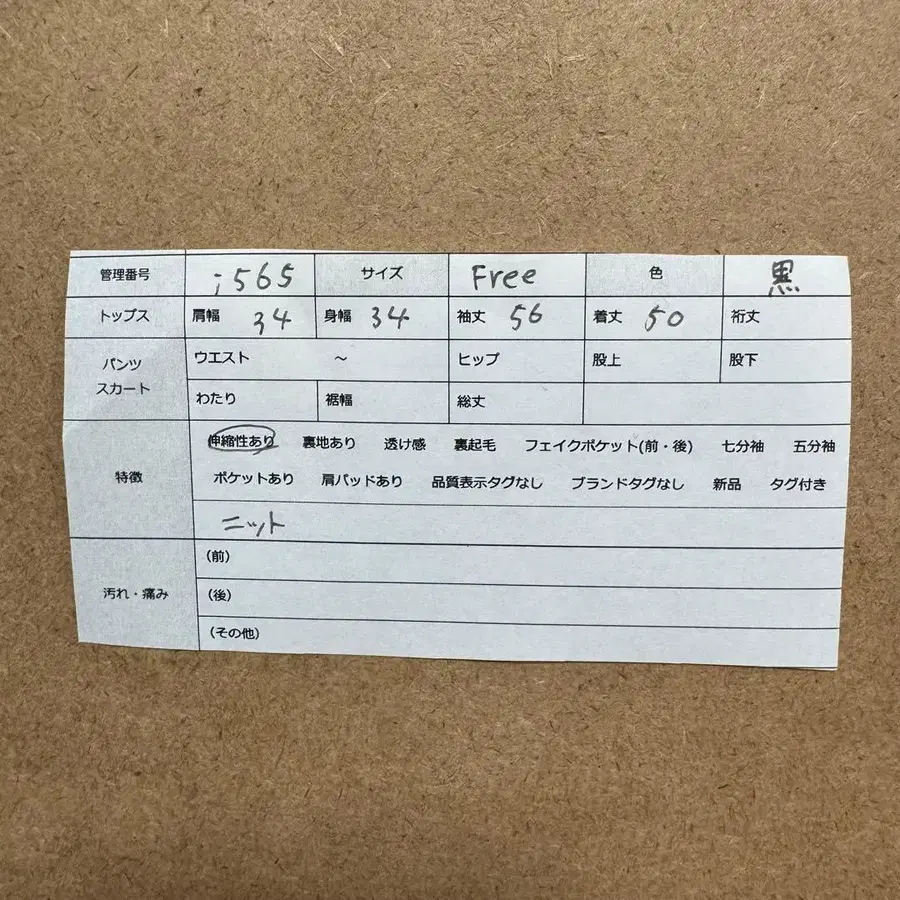 管理番号 i565 サイズ Free 色 黒
トップス 肩幅 34 身幅 34 袖丈 56 着丈 50 裄丈
パンツ スカート ウエスト ～ ヒップ 股上 股下
わたり 裾幅 総丈
特徴 伸縮性あり 裏地あり 透け感 裏起毛 フェイクポケット(前・後) 七分袖 五分袖
ポケットあり 肩パッドあり 品質表示タグなし ブランドタグなし 新品 タグ付き
ニット
汚れ・痛み (前)
(後)
(その他)